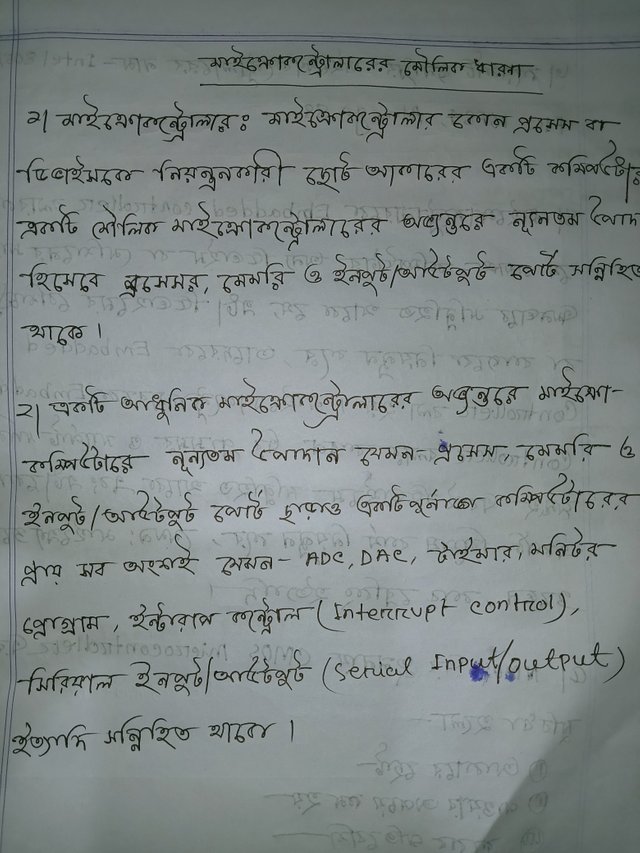 মাইক্রোকন্ট্রোলারের মৌলিক ধারনা
১। মাইক্রোকন্ট্রোলার: মাইক্রোকন্ট্রোলার কোন প্রসেস বা
ডিভাইসকে নিয়ন্ত্রনকারী ছোট আকারের একটি কম্পিউটার
একটি মৌলিক মাইক্রোকন্ট্রোলারের অভ্যন্তরে ন্যূনতম উপাদান
হিসেবে প্রসেসর, মেমরি ও ইনপুট/আউটপুট পোর্ট সন্নিহিত
থাকে।
২। একটি আধুনিক মাইক্রোকন্ট্রোলারের অভ্যন্তরে মাইক্রো-
কম্পিউটারের নূন্যতম উপাদান যেমন- প্রসেস, মেমরি ও
ইনপুট/আউটপুট পোর্ট ছাড়াও একটি পূর্নাঙ্গ কম্পিউটারের
প্রায় সব অংশই যেমন- ADC, DAC, টাইমার, মনিটর
প্রোগ্রাম, ইন্টারাপ কন্ট্রোল (Interrupt control),
সিরিয়াল ইনপুট/আউটপুট (Serial Input/output)
ইত্যাদি সন্নিহিত থাকে।